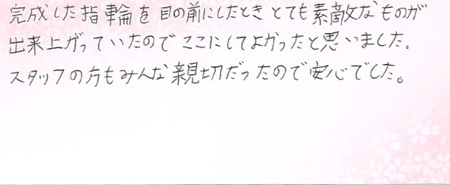 完成した指輪を目の前にしたときとても素敵なものが
出来上がっていたのでここにしてよかったと思いました。
スタッフの方もみんな親切だったので安心でした。